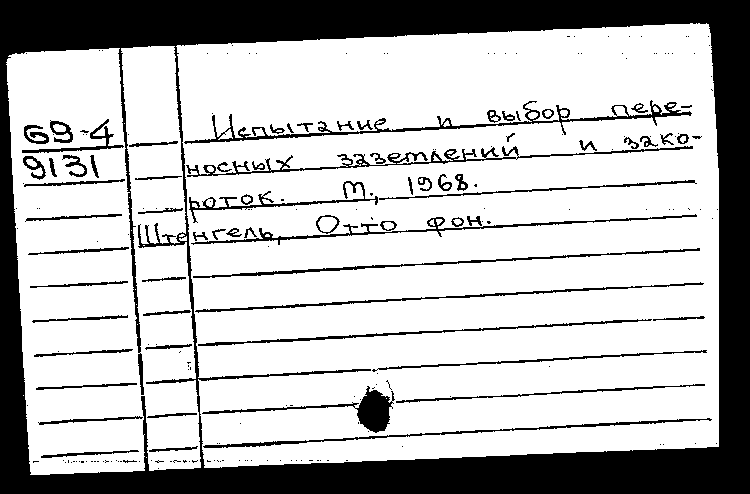 69-4
9131
Испытание и выбор пере-
носных заземлений и зако-
роток. М., 1968.
Штенгель, Отто фон.